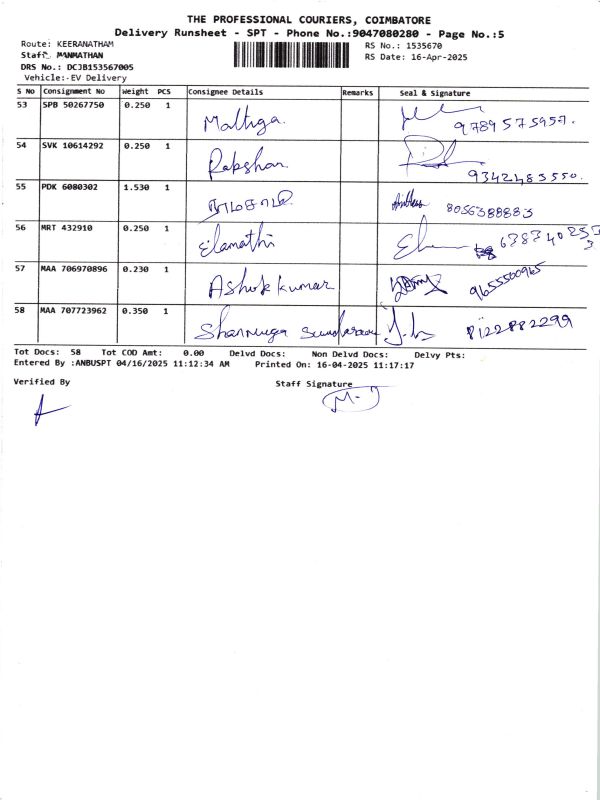 THE PROFESSIONAL COURIERS, COIMBATORE
Delivery Runsheet - SPT - Phone No.:9047080280 - Page No.:5
Route: KEERANATHAM
RS No.: 1535670
Staff: MANMATHAN
RS Date: 16-Apr-2025
DRS No.: DCJB153567005
Vehicle:-EV Delivery
S No Consignment No Weight PCS Consignee Details Remarks Seal & Signature
53 SPB 50267750 0.250 1 Maltiga. 9789575957.
54 SVK 10614292 0.250 1 Rakshan 9342483550.
55 PDK 6080302 1.530 1 8056388883
56 MRT 432910 0.250 1 Elamathi
57 MAA 706970896 0.230 1 Ashok kumar 9655500965
58 MAA 707723962 0.350 1 Shanmuga Sundaram 8122882299
Tot Docs: 58 Tot COD Amt: 0.00 Delvd Docs: Non Delvd Docs: Delvy Pts:
Entered By :ANBUSPT 04/16/2025 11:12:34 AM Printed On: 16-04-2025 11:17:17
Verified By Staff Signature